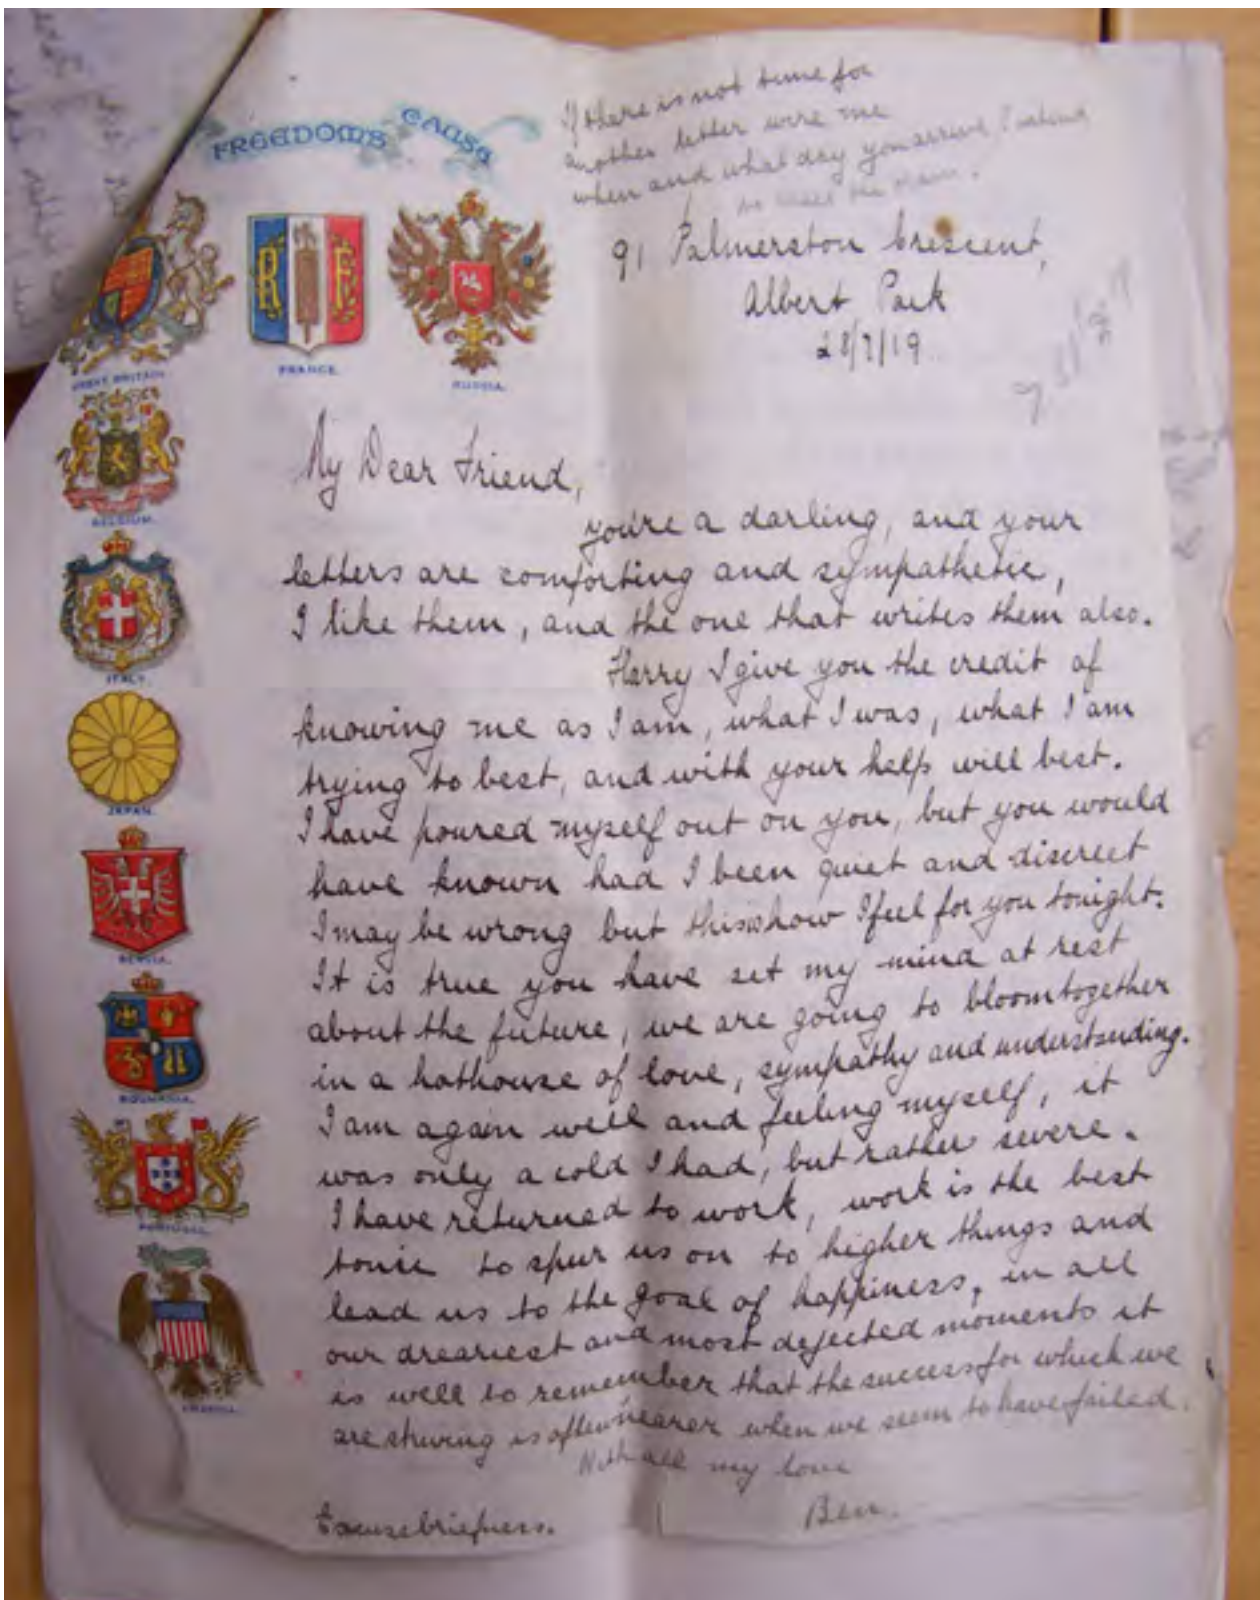 FREEDOM'S CAUSE
If there is not time for
another letter wire me
when and what day you arrive, I intend
to meet the train.
91 Palmerston Crescent,
Albert Park
28/7/19
GREAT BRITAIN.
FRANCE.
RUSSIA.
BELGIUM.
ITALY.
JAPAN.
SERVIA.
ROUMANIA.
PORTUGAL.
AMERICA.
My Dear Friend,
you're a darling, and your
letters are comforting and sympathetic,
I like them, and the one that writes them also.
Harry I give you the credit of
knowing me as I am, what I was, what I am
trying to best, and with your help will best.
I have poured myself out on you, but you would
have known had I been quiet and discreet
I may be wrong but this is how I feel for you tonight.
It is true you have set my mind at rest
about the future, we are going to bloom together
in a hothouse of love, sympathy and understanding.
I am again well and feeling myself, it
was only a cold I had, but rather severe.
I have returned to work, work is the best
tonic to spur us on to higher things and
lead us to the goal of happiness, in all
our dreariest and most dejected moments it
is well to remember that the success for which we
are striving is often nearer when we seem to have failed.
With all my love
Ben.
Excuse briefness.